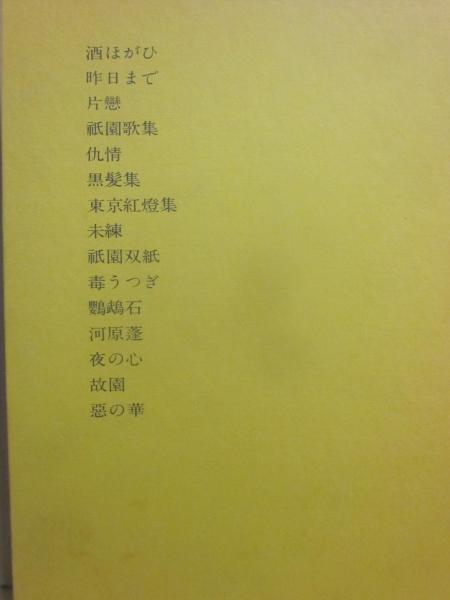 酒ほがひ
昨日まで
片戀
祇園歌集
仇情
黒髪集
東京紅燈集
未練
祇園双紙
毒うつぎ
鸚鵡石
河原蓬
夜の心
故園
惡の華